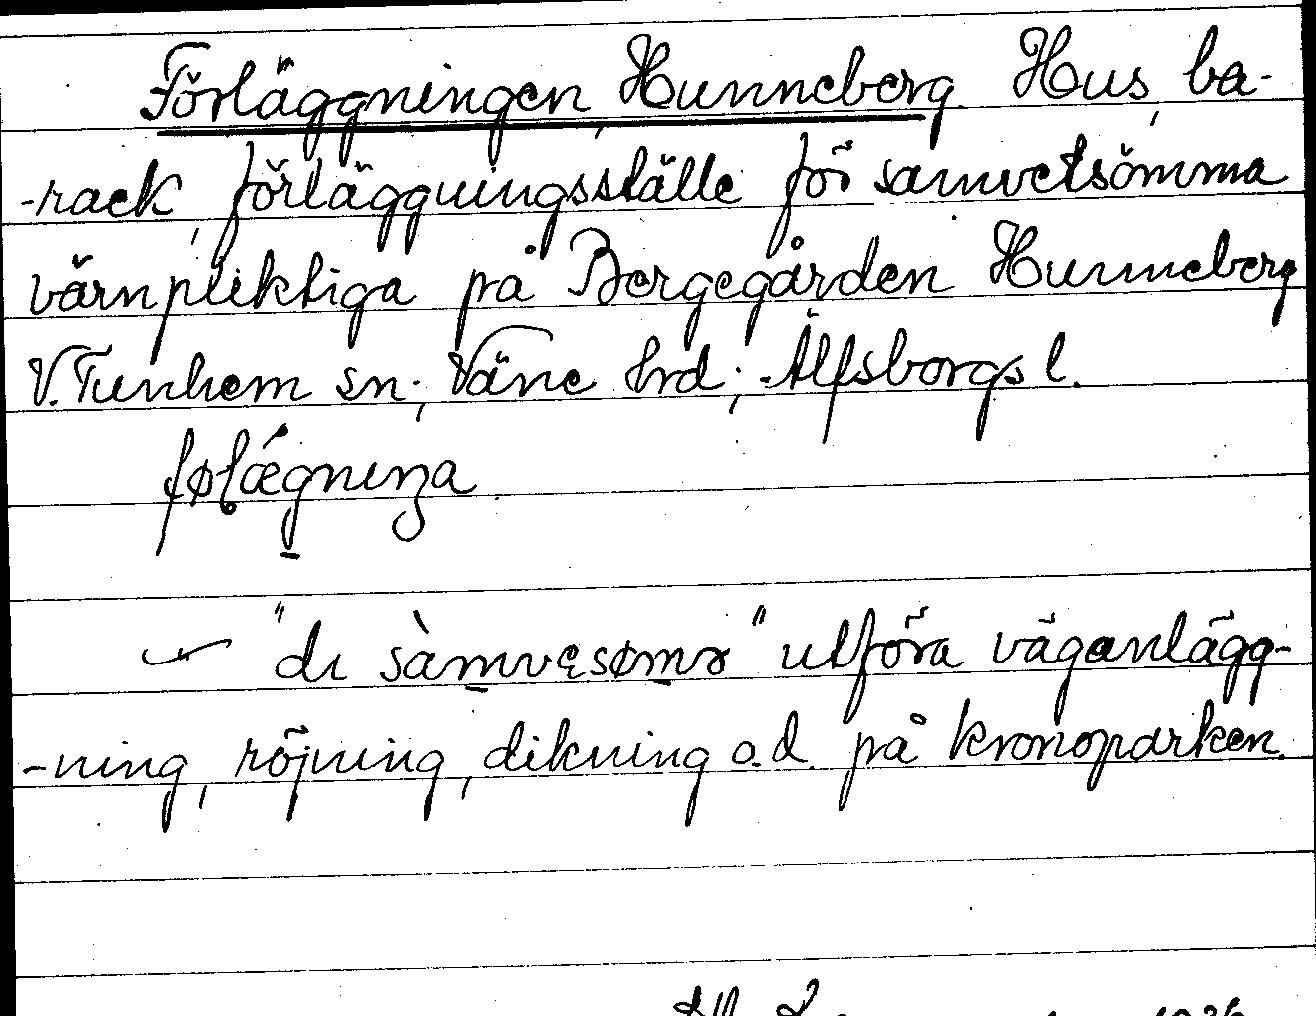 Förläggningen, Hunneberg. Hus, ba-
-rack, förläggningsställe för samvetsömma
värnpliktiga på Bergegården Hunneberg
V. Tunhem sn; Väne hrd; Älfsborgs l.
føɭǽgniŋa
"dı sàmvεsømə" utföra väganlägg-
-ning, röjning, dikning o.d. på kronoparken.